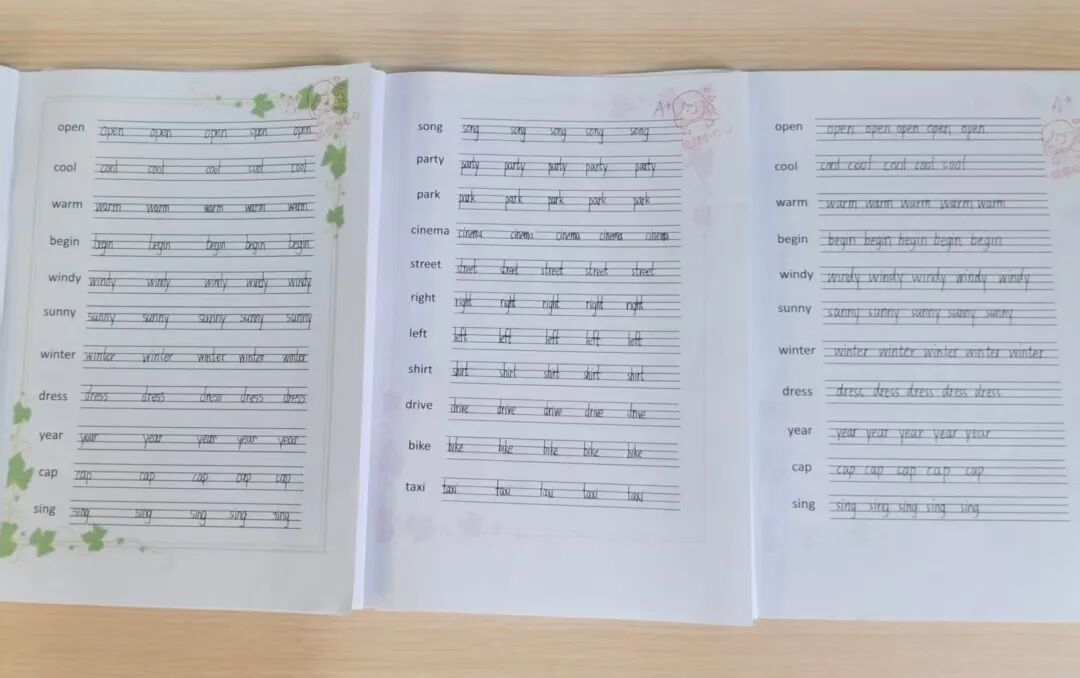 A+
open open open open open open
cool cool cool cool cool cool
warm warm warm warm warm warm
begin begin begin begin begin begin
windy windy windy windy windy windy
sunny sunny sunny sunny sunny sunny
winter winter winter winter winter winter
dress dress dress dress dress dress
year year year year year year
cap cap cap cap cap cap
sing sing sing sing sing sing
A+
song song song song song song
party party party party party party
park park park park park park
cinema cinema cinema cinema cinema cinema
street street street street street street
right right right right right right
left left left left left left
shirt shirt shirt shirt shirt shirt
drive drive drive drive drive drive
bike bike bike bike bike bike
taxi taxi taxi taxi taxi taxi
A+
open open open open open open
cool cool cool cool cool cool
warm warm warm warm warm warm
begin begin begin begin begin begin
windy windy windy windy windy windy
sunny sunny sunny sunny sunny sunny
winter winter winter winter winter winter
dress dress dress dress dress dress
year year year year year year
cap cap cap cap cap cap
sing sing sing sing sing sing